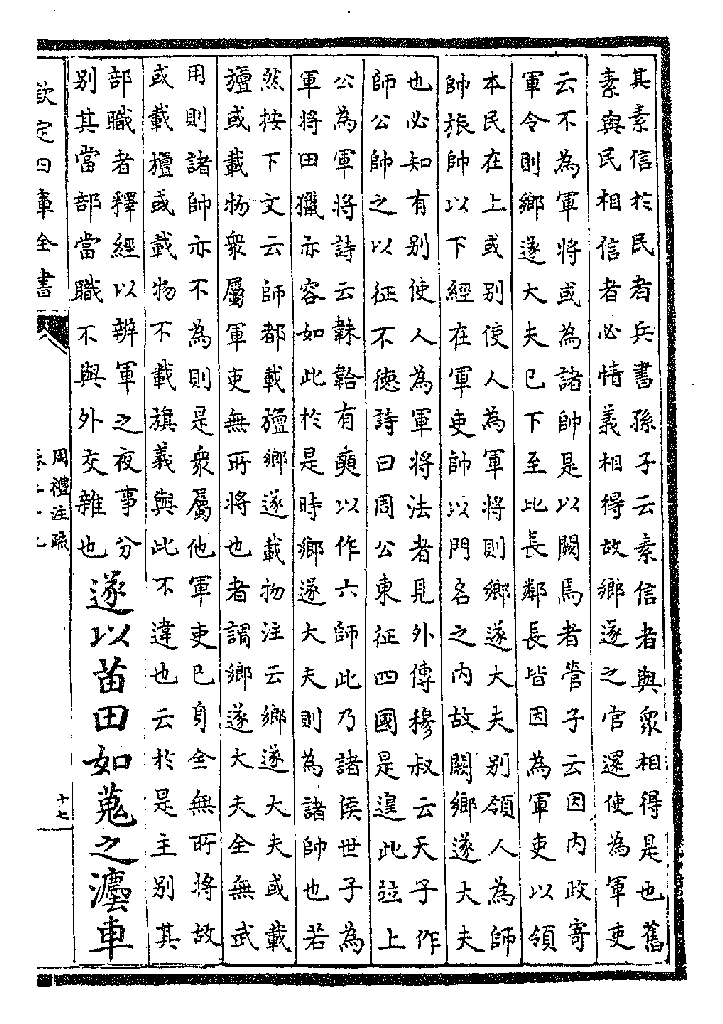 其素信於民者兵書孫子云素信者與衆相得是也舊
素與民相信者必情義相得故鄉遂之官還使為軍吏
云不為軍將或為諸帥是以闕焉者管子云因内政寄
軍令則鄉遂大夫已下至比長鄰長皆因為軍吏以領
本民在上或别使人為軍將則鄉遂大夫别領人為師
帥旅帥以下經在軍吏帥以門名之内故闕鄉遂大夫
也必知有别使人為軍將法者見外傳穆叔云天子作
師公帥之以征不德詩曰周公東征四國是遑此竝上
公為軍將詩云韎韐有奭以作六師此乃諸侯世子為
軍將田獵亦容如此於是時鄉遂大夫則為諸帥也若
然按下文云師都載旜鄉遂載物注云鄉遂大夫或載
旜或載物衆屬軍吏無所將也者謂鄉遂大夫全無武
用則諸帥亦不為則是衆屬他軍吏已身全無所將故
或載旜或載物不載旗義與此不違也云於是主别其
部職者釋經以辨軍之夜事分
别其當部當職不與外交雜也
遂以苗田如蒐之灋車
欽定四庫全書
周禮注疏
十七